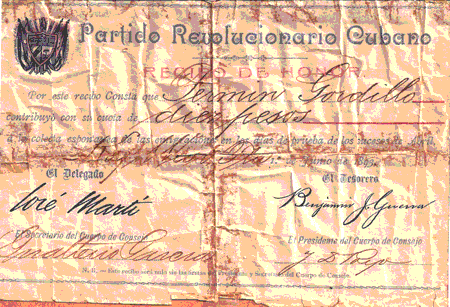 Partido Revolucionario Cubano
RECIBO DE HONOR.
Por este recibo Consta que Fermin Gordillo
contribuyó con su cuota de diez pesos
a la colecta espontanea de las emigraciones en los dias de prueba de los meses de Abril,
1º. de Junio de 189
El Delegado
El Tesorero
José Martí
Benjamin J. Guerra
El Secretario del Cuerpo de Consejo
El Presidente del Cuerpo de Consejo
N. B.—Este recibo será nulo sin las firmas del Presidente y Secretario del Cuerpo de Consejo.